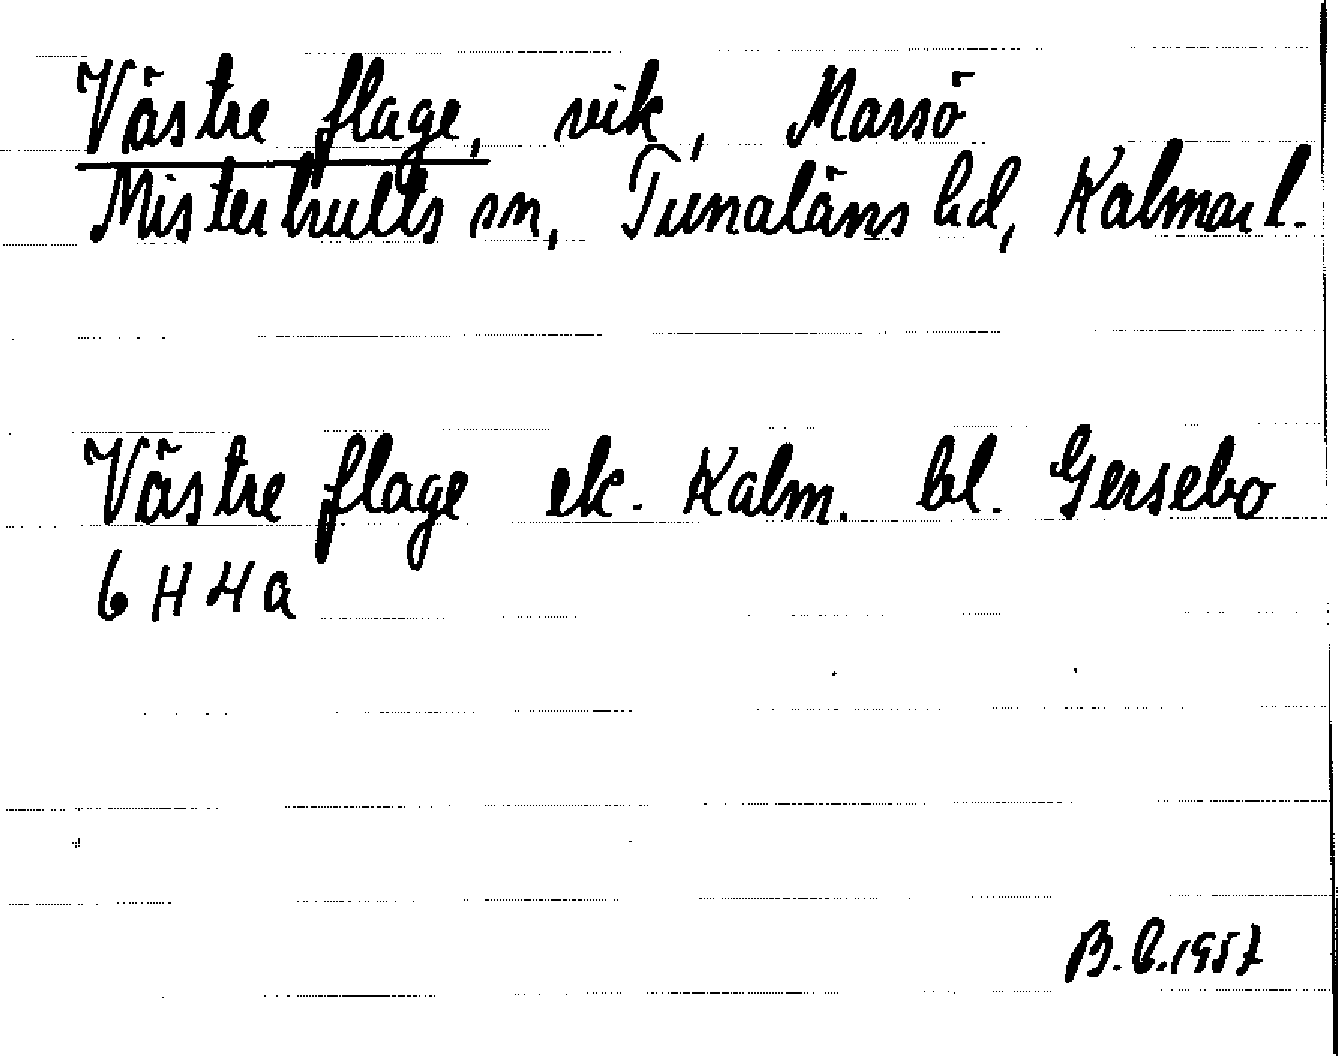 Västre flage, vik, Marsö
Misterhults sn, Tunaläns hd, Kalmar l.
Västre flage ek. Kalm. bl. Gersebo
6 H 4 a
B.C.1957